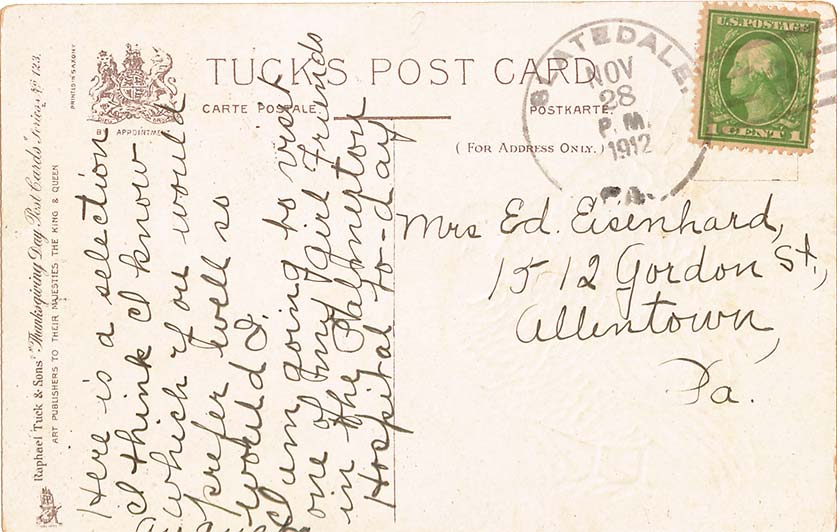 TUCK'S POST CARD
CARTE POSTALE.
POSTKARTE.
(FOR ADDRESS ONLY.)
PRINTED IN SAXONY
BY APPOINTMENT
Raphael Tuck & Sons' "Thanksgiving Day Post Cards" Series No 123.
ART PUBLISHERS TO THEIR MAJESTIES THE KING & QUEEN
SLATEDALE,
NOV
28
P.M.
1912
PA.
U.S. POSTAGE
1 CENT 1
Mrs Ed. Eisenhard,
1512 Gordon St,
Allentown,
Pa.
Here is a selection
I think I know
which you would
prefer well so
would I.
I am going to visit
one of my girl Friends
in the Palmerton
Hospital to-day